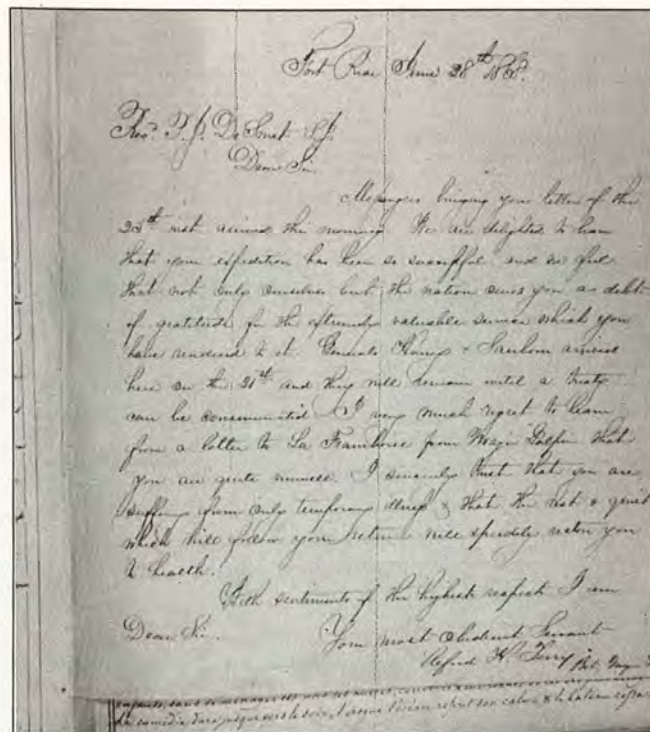 Fort Rice June 28th 1868.
Rev. P. J. De Smet S.J.
Dear Sir.
Messengers bringing your letter of the
25th inst arrived this morning. We are delighted to learn
that your expedition has been so successful and we feel
that not only ourselves but the nation owes you a debt
of gratitude for the extremely valuable service which you
have rendered to it. Generals Harney & Sanborn arrived
here on the 21st and they will remain until a treaty
can be consummated. I very much regret to learn
from a letter to La Framboise from Major Galpin that
you are quite unwell. I sincerely trust that you are
suffering from only temporary illness & that the rest & quiet
which will follow your return will speedily restore you
to health.
With sentiments of the highest respect I am
Dear Sir. Your most obedient Servant
Alfred H. Terry Bvt. Maj.
la comédie dura jusque vers le soir, lorsque l'océan reprit son calme & le bateau